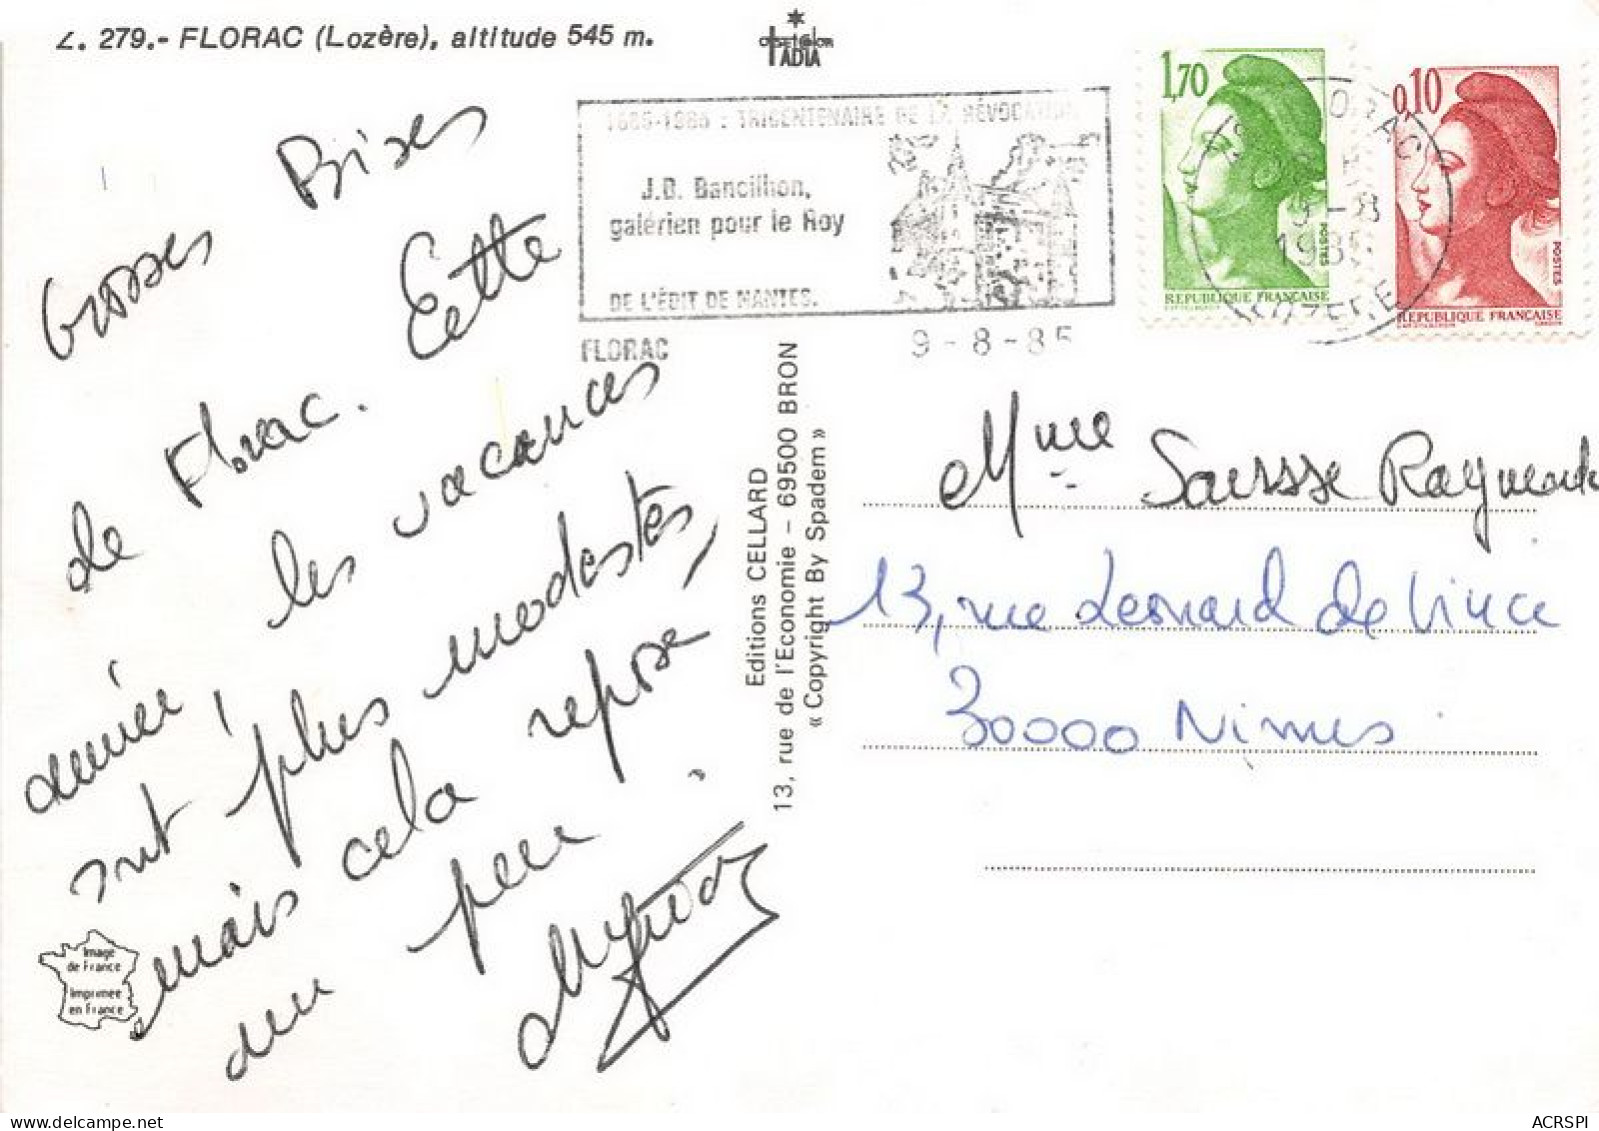 Z. 279.- FLORAC (Lozère), altitude 545 m.
TADIA
1685-1985 : TRICENTENAIRE DE LA RÉVOCATION
J.D. Bancilhon,
galérien pour le Roy
DE L'ÉDIT DE NANTES.
FLORAC
9-8-85
1,70
POSTES
REPUBLIQUE FRANÇAISE
0,10
POSTES
REPUBLIQUE FRANÇAISE
FLORAC
9-8
1985
LOZERE
Grosses Bises
de Florac. Cette
année, les vacances
sont plus modestes,
mais cela repose
un peu.
Editions CELLARD
13, rue de l'Economie - 69500 BRON
« Copyright By Spadem »
Mme Saussse Raymonde
13, rue Leonard de Vince
30000 Nimes
Image
de France
Imprimée
en France
ACRSPI